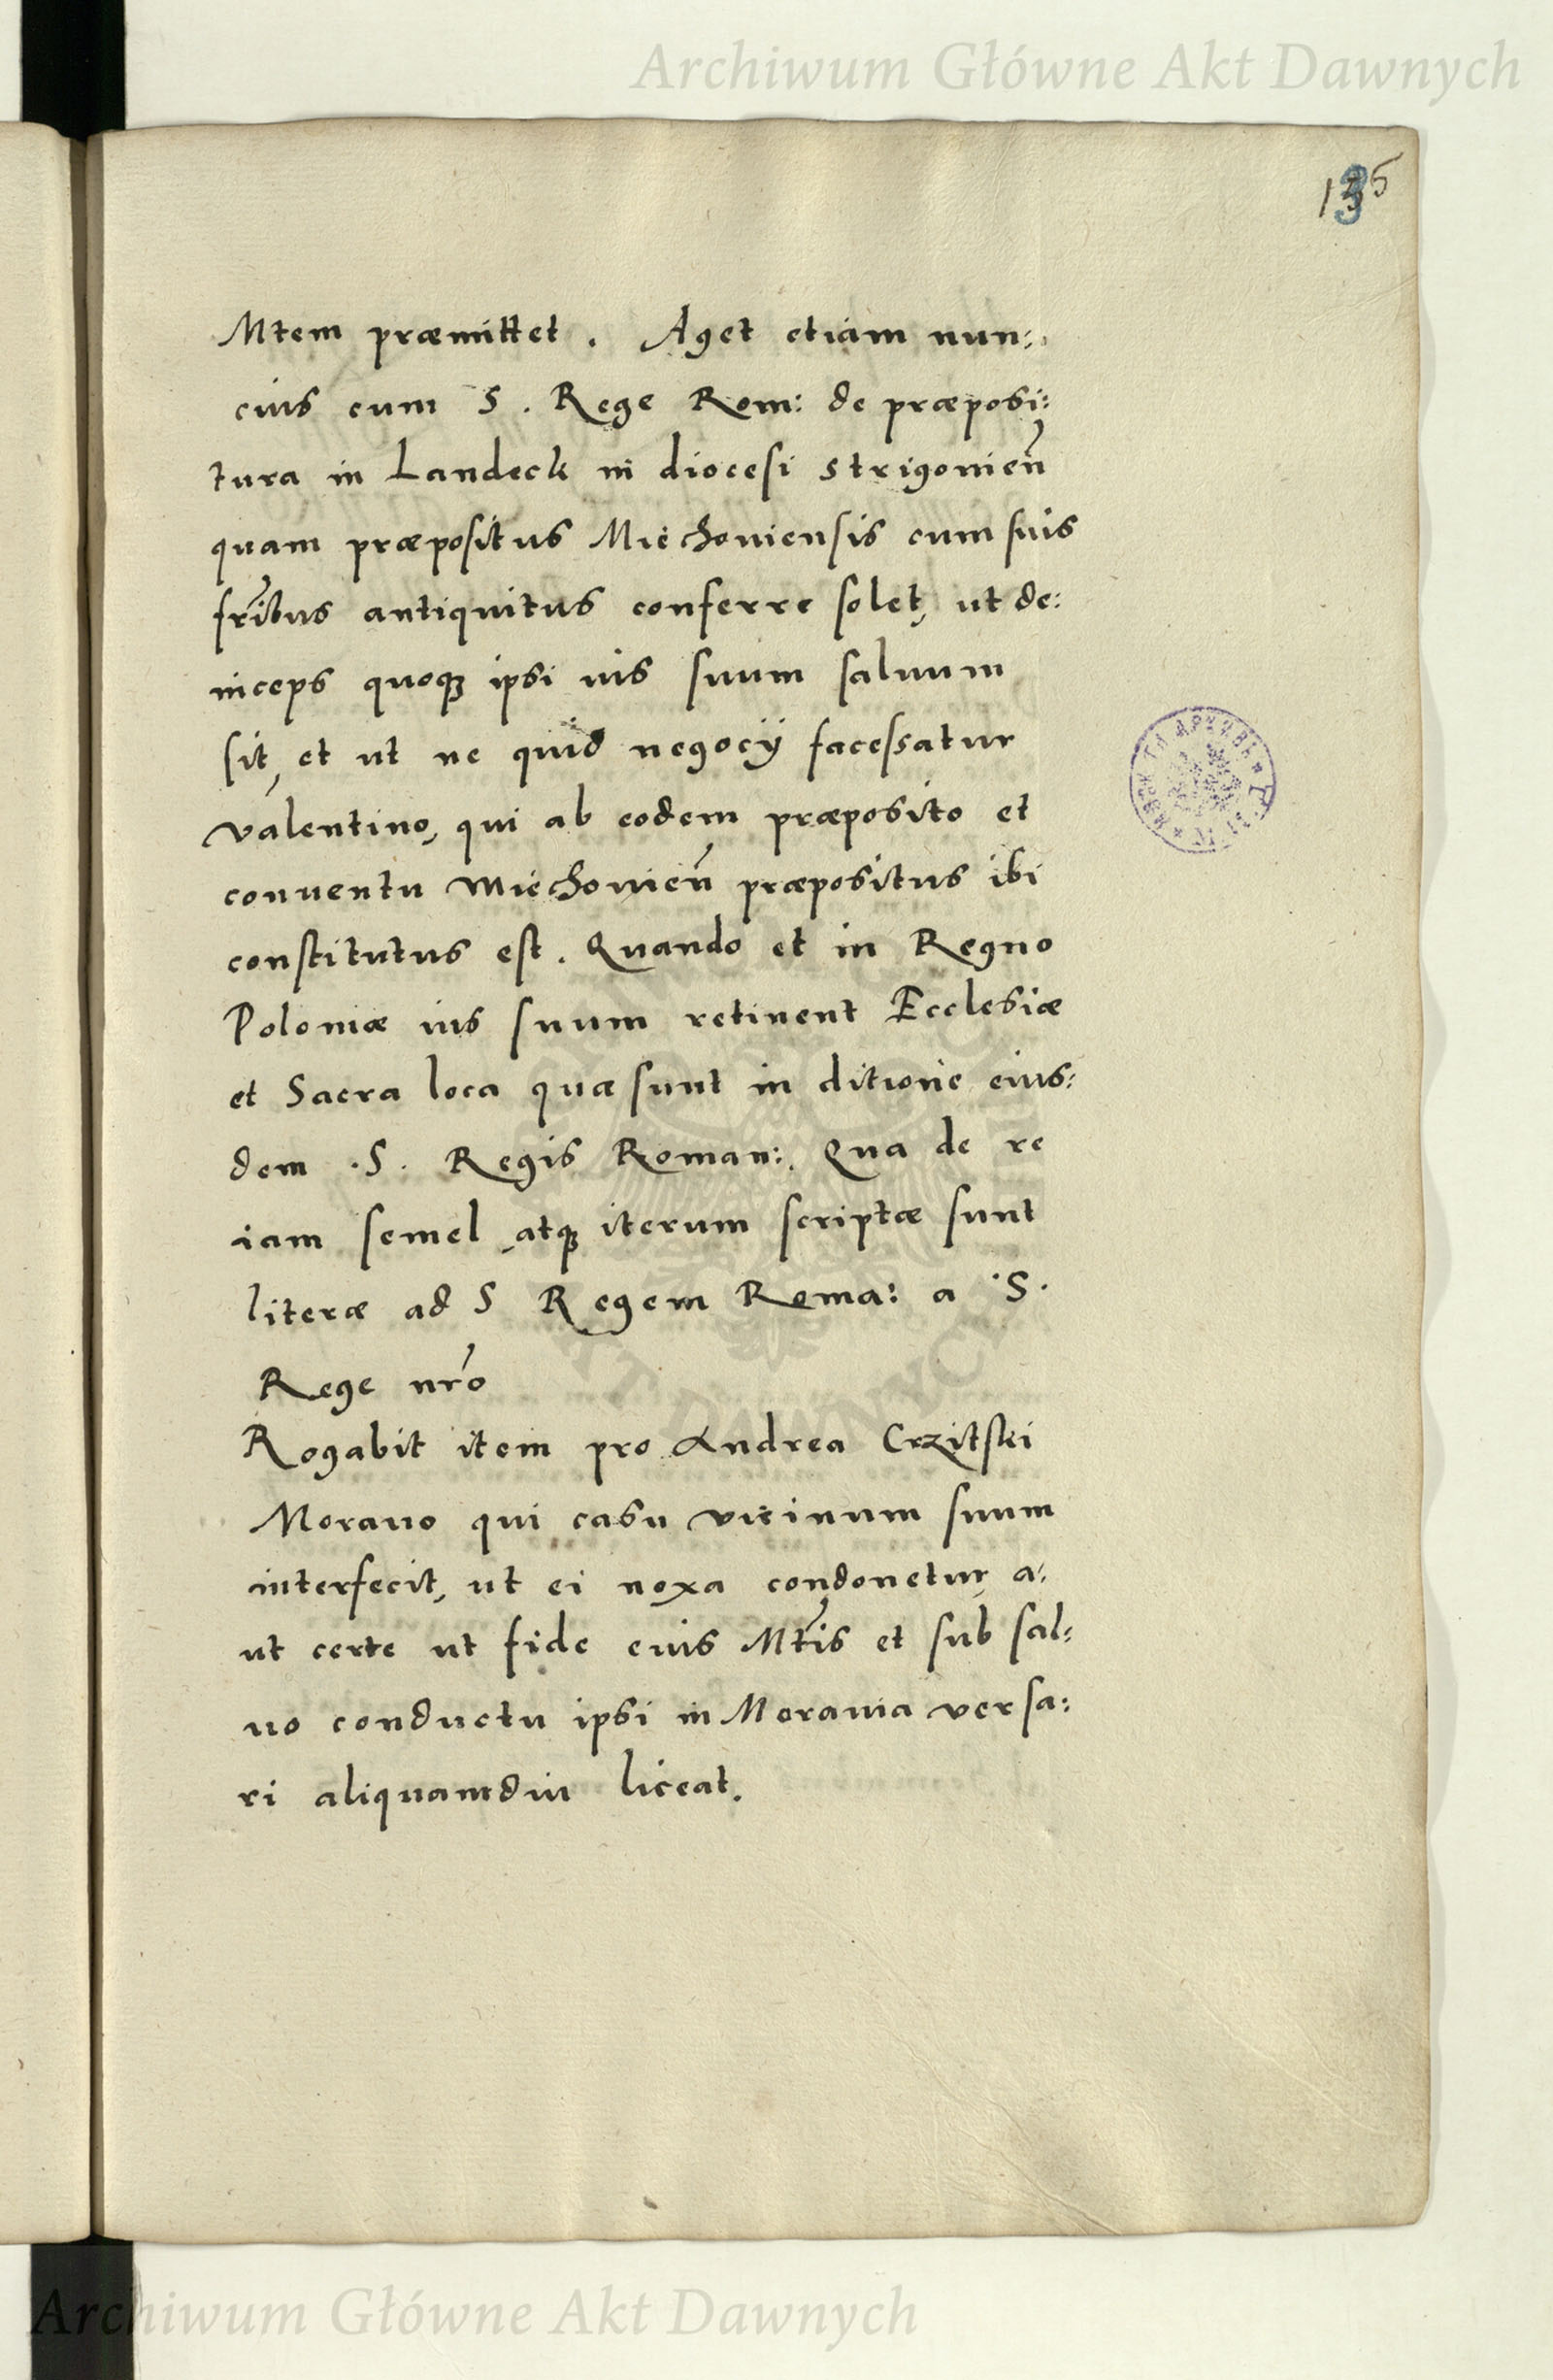 Archiwum Główne Akt Dawnych
135
Mtem præmittet. Aget etiam nun:
cius cum S. Rege Rom: de præposi:
tura in Landeck in diocesi Strigonien̄
quam præpositus Miechoviensis cum suis
fr̄ibus antiquitus conferre solet, ut de:
inceps quoqꝫ ipsi ius suum saluum
sit, et ut ne quid negocÿ facessatur
Valentino, qui ab eodem præposito et
conuentu Miechouien̄ præpositus ibi
constitutus est. Quando et in Regno
Poloniæ ius suum retinent Ecclesiæ
et Sacra loca quæ sunt in ditione eius:
dem .S. Regis Roman:. Qua de re
iam semel, atqꝫ iterum scriptæ sunt
literæ ad S Regem Roma: a .S.
Rege nr̄o
Rogabit item pro Andrea Crzitski
Morauo qui casu vicinum suum
interfecit, ut ei noxa condonetur, a:
ut certe ut fide eius Mt̄is et sub sal:
uo conductu ipsi in Morauia versa:
ri aliquamdiu liceat.
Archiwum Główne Akt Dawnych